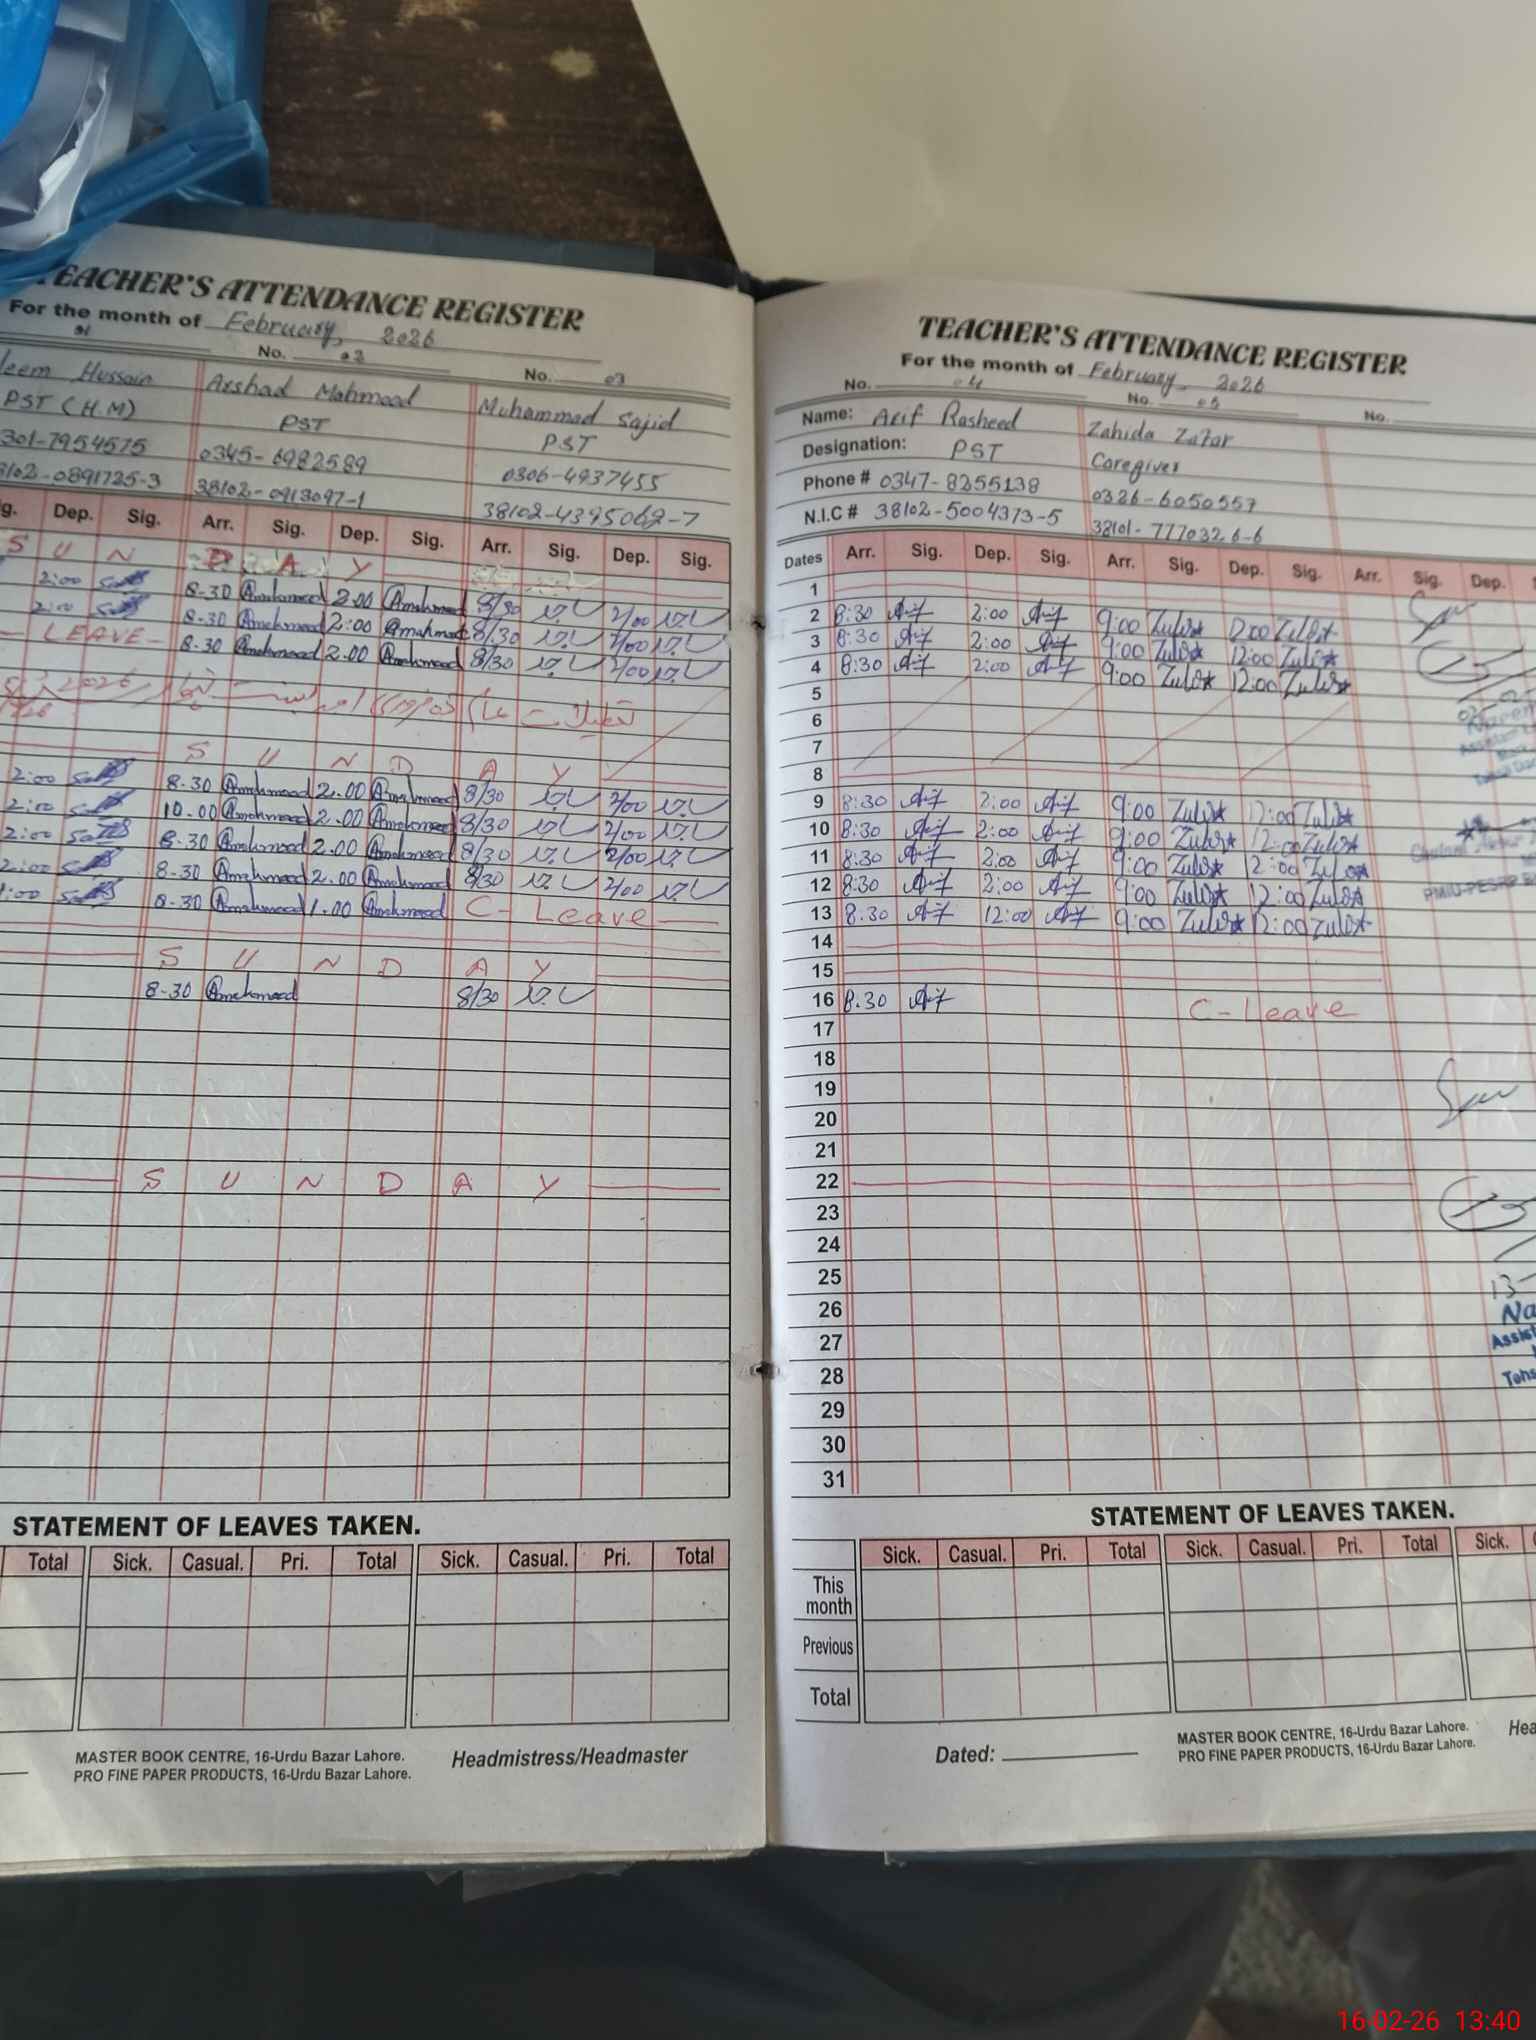 TEACHER'S ATTENDANCE REGISTER
For the month of February, 2026
No. 02
No. 03
Hussain
Arshad Mahmood
Muhammad Sajid
PST (H.M)
PST
PST
301-7954575
0345-6982589
0306-4937455
8102-0891725-3
38102-0913097-1
38102-4395062-7
Dep. Sig. Arr. Sig. Dep. Sig. Arr. Sig. Dep. Sig.
S U N D A Y
2:00 8-30 Amahmood 2.00 Amahmood 8/30 2/00
2:00 8-30 Amahmood 2:00 Amahmood 8/30 2/00
LEAVE 8-30 Amahmood 2.00 Amahmood 8/30 2/00
2026
S U N D A Y
2:00 8-30 Amahmood 2.00 Amahmood 8/30 2/00
2:00 10.00 Amahmood 2.00 Amahmood 8/30 2/00
2:00 8-30 Amahmood 2.00 Amahmood 8/30 2/00
2:00 8-30 Amahmood 2.00 Amahmood 8/30 2/00
:00 8-30 Amahmood 1.00 Amahmood C-Leave
S U N D A Y
8-30 Amahmood 8/30
S U N D A Y
STATEMENT OF LEAVES TAKEN.
Total Sick. Casual. Pri. Total Sick. Casual. Pri. Total
MASTER BOOK CENTRE, 16-Urdu Bazar Lahore.
PRO FINE PAPER PRODUCTS, 16-Urdu Bazar Lahore.
Headmistress/Headmaster
TEACHER'S ATTENDANCE REGISTER
For the month of February, 2026
No. 04
No. 05
No.
Name: Arif Rasheed
Zahida Zafar
Designation: PST
Caregiver
Phone # 0347-8255138
0326-6050557
N.I.C # 38102-5004373-5
38101-7770326-6
Dates Arr. Sig. Dep. Sig. Arr. Sig. Dep. Sig. Arr. Sig. Dep.
1
2 8:30 Arif 2:00 Arif 9:00 12:00
3 8:30 Arif 2:00 Arif 9:00 12:00
4 8:30 Arif 2:00 Arif 9:00 12:00
5
6
7
8
9 8:30 Arif 2:00 Arif 9:00 12:00
10 8:30 Arif 2:00 Arif 9:00 12:00
11 8:30 Arif 2:00 Arif 9:00 12:00
12 8:30 Arif 2:00 Arif 9:00 12:00
13 8:30 Arif 12:00 Arif 9:00 12:00
14
15
16 8:30 Arif C-Leave
17
18
19
20
21
22
23
24
25
26
27
28
29
30
31
STATEMENT OF LEAVES TAKEN.
Sick. Casual. Pri. Total Sick. Casual. Pri. Total Sick.
This month
Previous
Total
Dated:
MASTER BOOK CENTRE, 16-Urdu Bazar Lahore.
PRO FINE PAPER PRODUCTS, 16-Urdu Bazar Lahore.
16-02-26 13:40